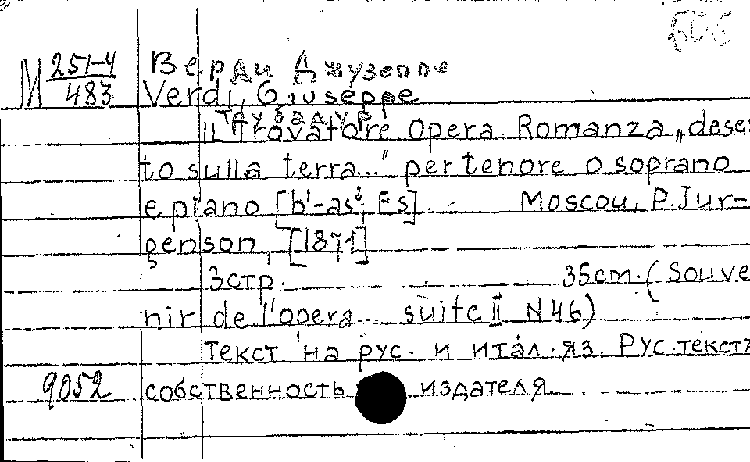 M 251-4
483
Верди Джузеппе
Verdi, Giuseppe
Трубадур
Il trovatore Opera Romanza „deser
to sulla terra..." per tenore o soprano
e piano [b¹-as², Es]. Moscou, P. Jur-
genson, [1871]
3 стр. 35 cm. (Souve
nir de l'opera... suite II N 46)
Текст на рус. и итал. яз. Рус. текстъ
9052
собственность издателя